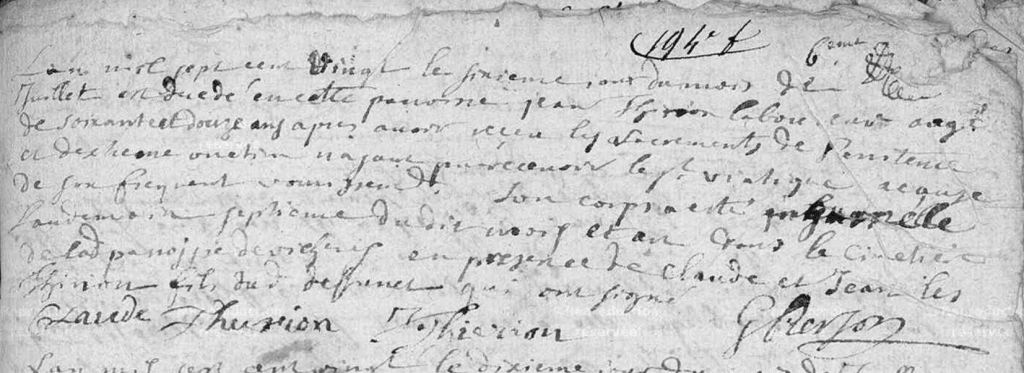 194e f
6eme
Lan mil sept cent vingt le sixieme jour du mois de
Juillet est decedé en cette parroisse jean Thirion laboureur aagé
de soixante et douze ans apres avoir reçeu les sacrements de Penitence
et dextreme onction nayant pu recevoir le st viatique acause
de son frequent vomissement. Son corps a esté inhumé le
Landemain septieme dudit mois et an dans le cimetiere
de lad parroisse de en presence de Claude et Jean les
Thirion fils dud deffunct qui ont signé
Claude Thurion J Thierion
Lan mil sept cent vingt le dixieme jour du